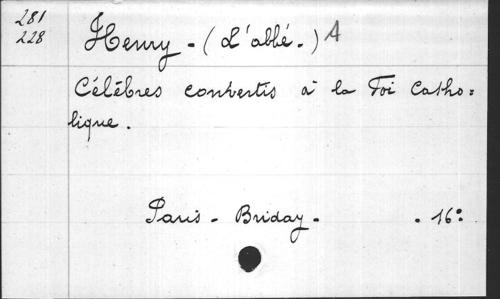 281
228
Henry - (L'abbé.) A
Célèbres convertis à la Foi Catho=
lique.
Paris - Briday - . 16°